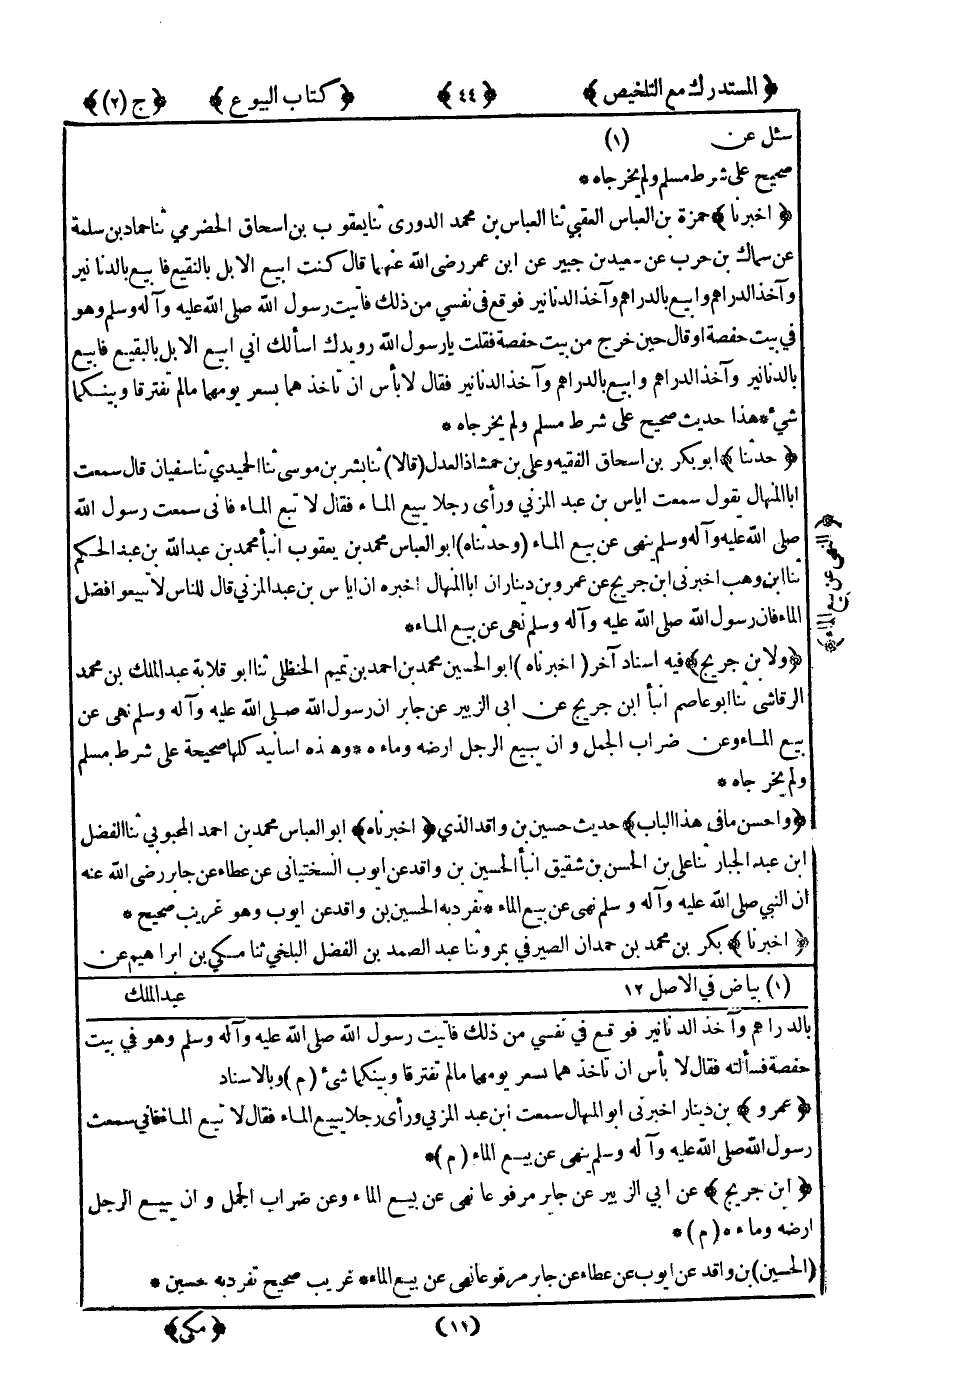 ﴿المستدرك مع التلخيص﴾ ﴿٤٤﴾ ﴿كتاب البيوع﴾ ﴿ج (٢)﴾
سئل عن (١)
صحيح على شرط مسلم ولم يخرجاه *
﴿ اخبرنا ﴾ حمزة بن العباس العقبي ثنا العباس بن محمد الدورى ثنا يعقوب بن اسحاق الحضرمي ثنا حماد بن سلمة
عن سماك بن حرب عن سعيد بن جبير عن ابن عمر رضى الله عنهما قال كنت ابيع الابل بالنقيع فابيع بالدنانير
وآخذ الدراهم وابيع بالدراهم وآخذ الدنانير فوقع فى نفسي من ذلك فاتيت رسول الله صلى الله عليه وآله وسلم وهو
في بيت حفصة او قال حين خرج من بيت حفصة فقلت يارسول الله رويدك اسألك اني ابيع الابل بالبقيع فابيع
بالدنانير وآخذ الدراهم وابيع بالدراهم وآخذ الدنانير فقال لا بأس ان تاخذ هما بسعر يومهما مالم تفترقا وبينكما
شئ * هذا حديث صحيح على شرط مسلم ولم يخرجاه *
﴿ حدثنا ﴾ ابو بكر بن اسحاق الفقيه وعلى بن حمشاذ العدل (قالا) ثنا بشر بن موسى ثنا الحميدي ثنا سفيان قال سمعت
ابا المنهال يقول سمعت اياس بن عبد المزني ورأى رجلا يبيع الماء فقال لا تبع الماء فانى سمعت رسول الله
صلى الله عليه وآله وسلم ينهى عن بيع الماء (وحدثناه) ابو العباس محمد بن يعقوب انبأ محمد بن عبدالله بن عبد الحكم
ثنا ابن وهب اخبرنى ابن جريج عن عمرو بن دينار ان ابا المنهال اخبره ان اياس بن عبد المزني قال للناس لا تبيعوا فضل
الماء فان رسول الله صلى الله عليه وآله وسلم نهى عن بيع الماء *
﴿ولابن جريج﴾ فيه اسناد آخر (اخبرناه) ابو الحسين محمد بن احمد بن تميم الحنظلى ثنا ابو قلابة عبد الملك بن محمد
الرقاشى ثنا ابو عاصم انبأ ابن جريج عن ابى الزبير عن جابر ان رسول الله صلى الله عليه وآله وسلم نهى عن
بيع الماء وعن ضراب الجمل وان يبيع الرجل ارضه وماءه * وهذه اسانيد كلها صحيحة على شرط مسلم
ولم يخرجاه *
﴿واحسن مافى هذا الباب﴾ حديث حسين بن واقد الذي ﴿اخبرناه﴾ ابو العباس محمد بن احمد المحبوبي ثنا الفضل
ابن عبد الجبار ثنا على بن الحسن بن شقيق انبأ الحسين بن واقد عن ايوب السختيانى عن عطاء عن جابر رضى الله عنه
ان النبي صلى الله عليه وآله وسلم نهى عن بيع الماء * تفرد به الحسين بن واقد عن ايوب وهو غريب صحيح *
﴿ اخبرنا ﴾ بكر بن محمد بن حمدان الصيرفي بمرو ثنا عبد الصمد بن الفضل البلخي ثنا مكي بن ابراهيم عن
﴿النهى عن بيع الماء﴾
(١) بياض في الاصل ١٢ عبدالملك
بالدراهم وآخذ الدنانير فوقع في نفسي من ذلك فاتيت رسول الله صلى الله عليه وآله وسلم وهو في بيت
حفصة فسألته فقال لا بأس ان تاخذ هما بسعر يومهما مالم تفترقا وبينكما شئ (م) وبالاسناد
﴿عمرو﴾ بن دينار اخبرنى ابو المنهال سمعت ابن عبد المزني ورأى رجلا يبيع الماء فقال لا تبع الماء فاني سمعت
رسول الله صلى الله عليه وآله وسلم ينهى عن بيع الماء (م) *
﴿ابن جريج﴾ عن ابي الزبير عن جابر مرفوعا نهى عن بيع الماء وعن ضراب الجمل وان يبيع الرجل
ارضه وماءه (م) *
(الحسين) بن واقد عن ايوب عن عطاء عن جابر مرفوعا نهى عن بيع الماء * غريب صحيح تفرد به حسين *
(١١) ﴿مكي﴾